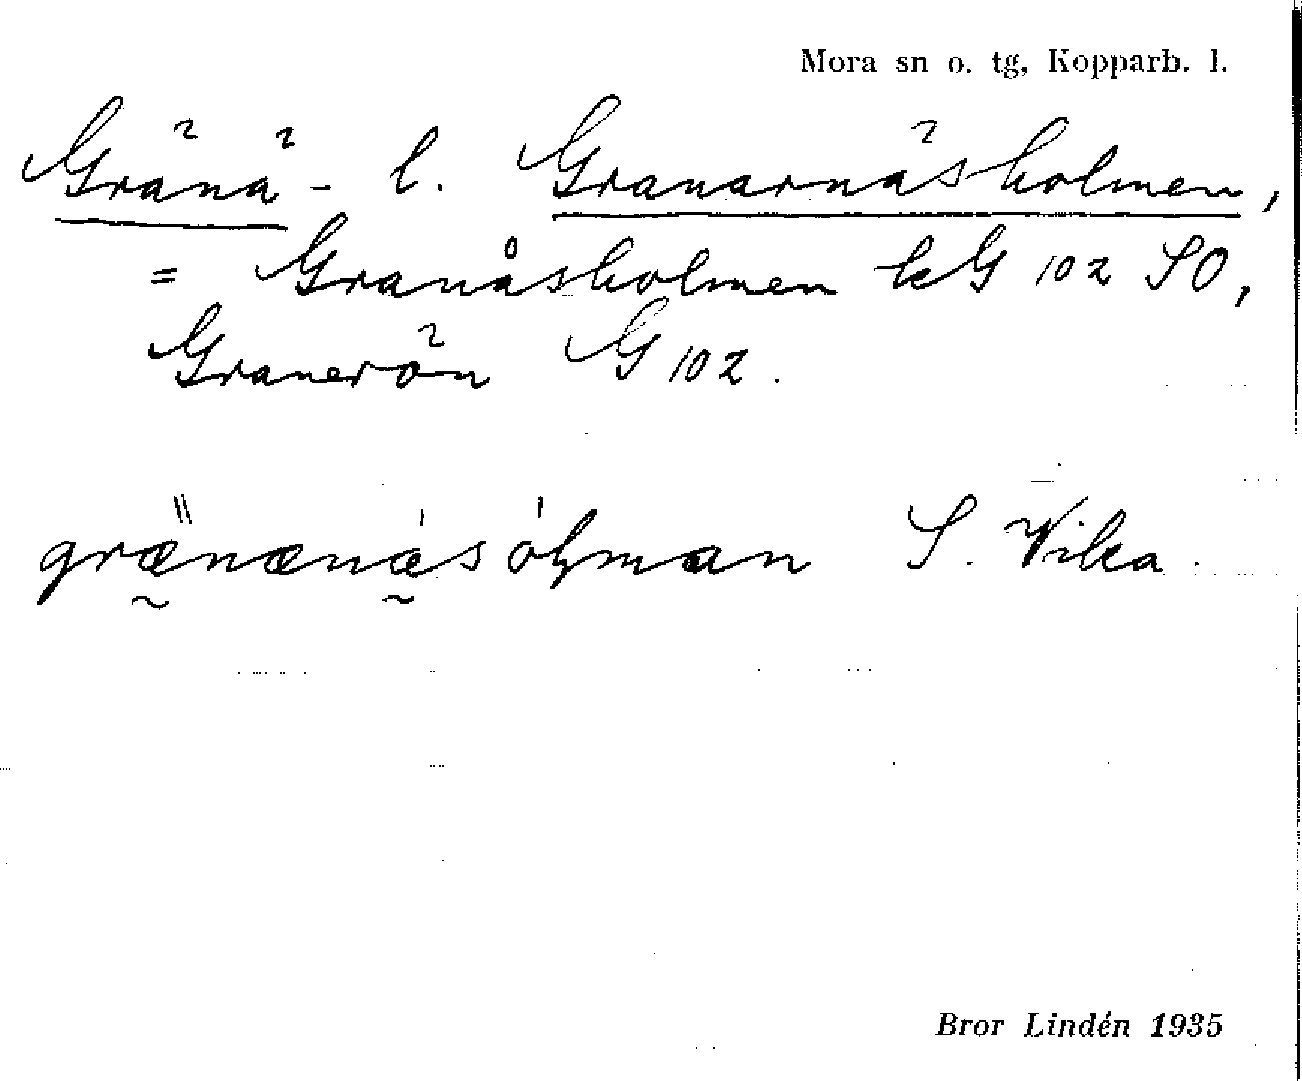 Mora sn o. tg, Kopparb. l.
Gränä- l. Granarnäsholmen,
= Granåsholmen kG 102 SO,
Granerön G 102.
grænænæsólman S. Vika.
Bror Lindén 1935